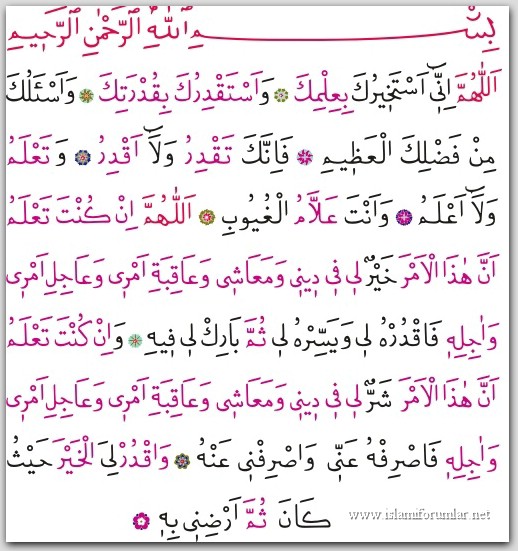 بِسْــــــــمِ اللّٰهِ الرَّحْمٰنِ الرَّحِيمِ
اَللّٰهُمَّ اِنِّٓى اَسْتَخِيرُكَ بِعِلْمِكَ وَاَسْتَقْدِرُكَ بِقُدْرَتِكَ وَاَسْئَلُكَ
مِنْ فَضْلِكَ الْعَظِيمِ فَاِنَّكَ تَقْدِرُ وَلَٓا اَقْدِرُ وَتَعْلَمُ
وَلَٓا اَعْلَمُ وَاَنْتَ عَلَّامُ الْغُيُوبِ اَللّٰهُمَّ اِنْ كُنْتَ تَعْلَمُ
اَنَّ هٰذَا الْاَمْرَ خَيْرٌ لِى فِى دِينِى وَمَعَاشِى وَعَاقِبَةِ اَمْرِى وَعَاجِلِ اَمْرِى
وَاٰجِلِهِ فَاقْدُرْهُ لِى وَيَسِّرْهُ لِى ثُمَّ بَارِكْ لِى فِيهِ وَاِنْ كُنْتَ تَعْلَمُ
اَنَّ هٰذَا الْاَمْرَ شَرٌّ لِى فِى دِينِى وَمَعَاشِى وَعَاقِبَةِ اَمْرِى وَعَاجِلِ اَمْرِى
وَاٰجِلِهِ فَاصْرِفْهُ عَنِّى وَاصْرِفْنِى عَنْهُ وَاقْدُرْ لِىَ الْخَيْرَ حَيْثُ
كَانَ ثُمَّ اَرْضِنِى بِهِ
www.islamiforumlar.net